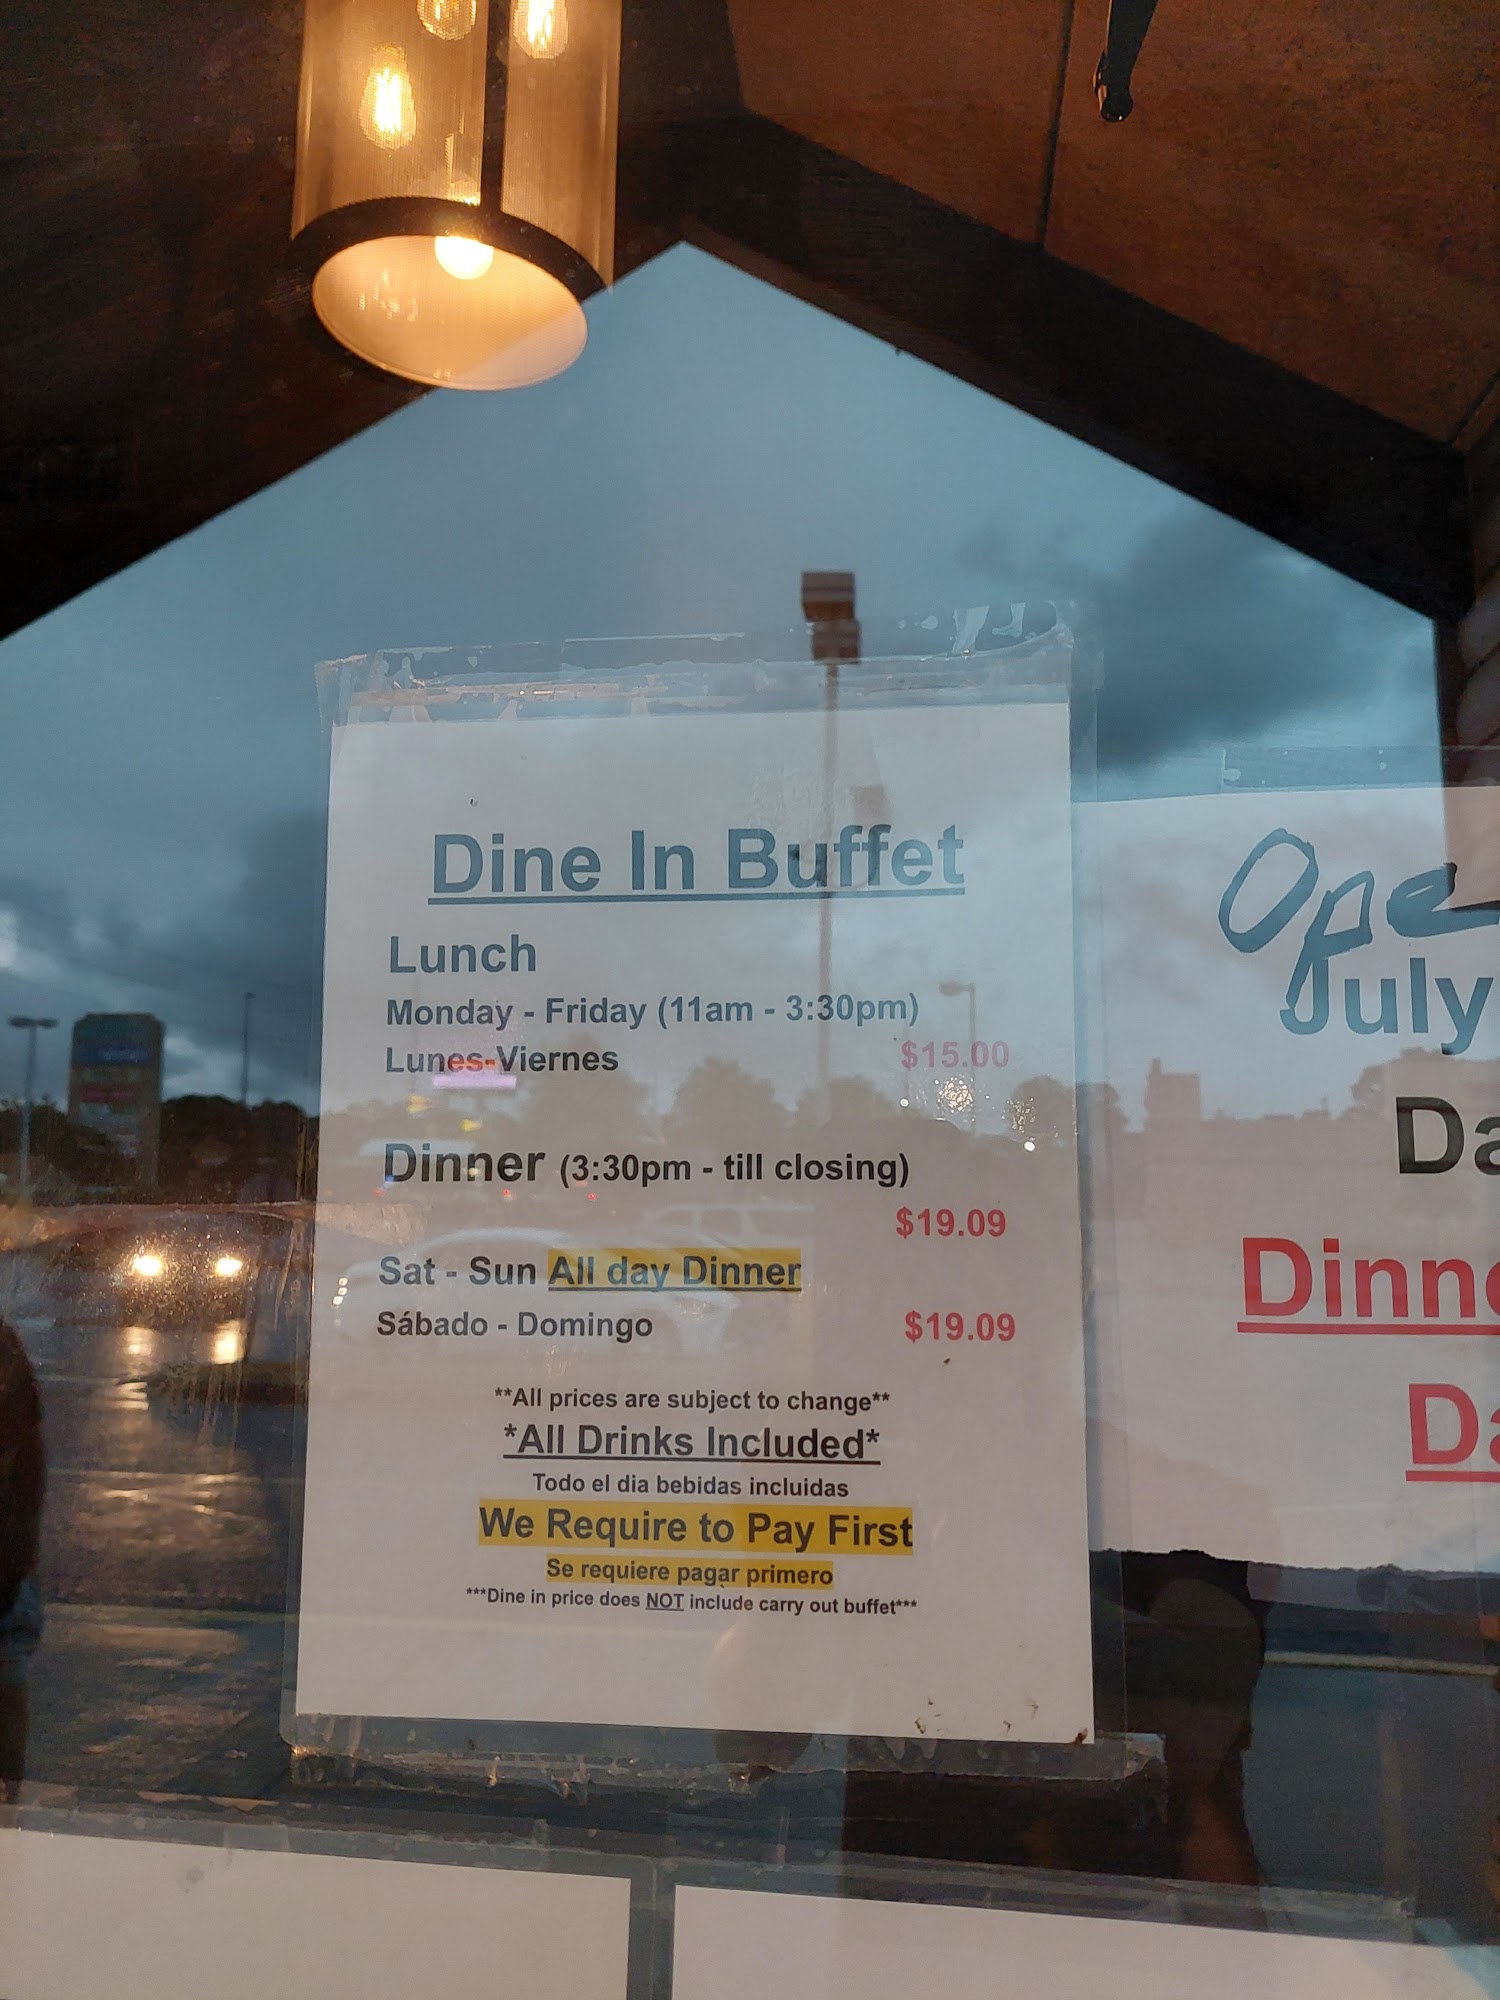 Dine In Buffet
Lunch
Monday - Friday (11am - 3:30pm)
Lunes-Viernes $15.00
Dinner (3:30pm - till closing)
$19.09
Sat - Sun All day Dinner
Sábado - Domingo $19.09
**All prices are subject to change**
*All Drinks Included*
Todo el dia bebidas incluidas
We Require to Pay First
Se requiere pagar primero
***Dine in price does NOT include carry out buffet***
Ope
July
Da
Dinne
Da